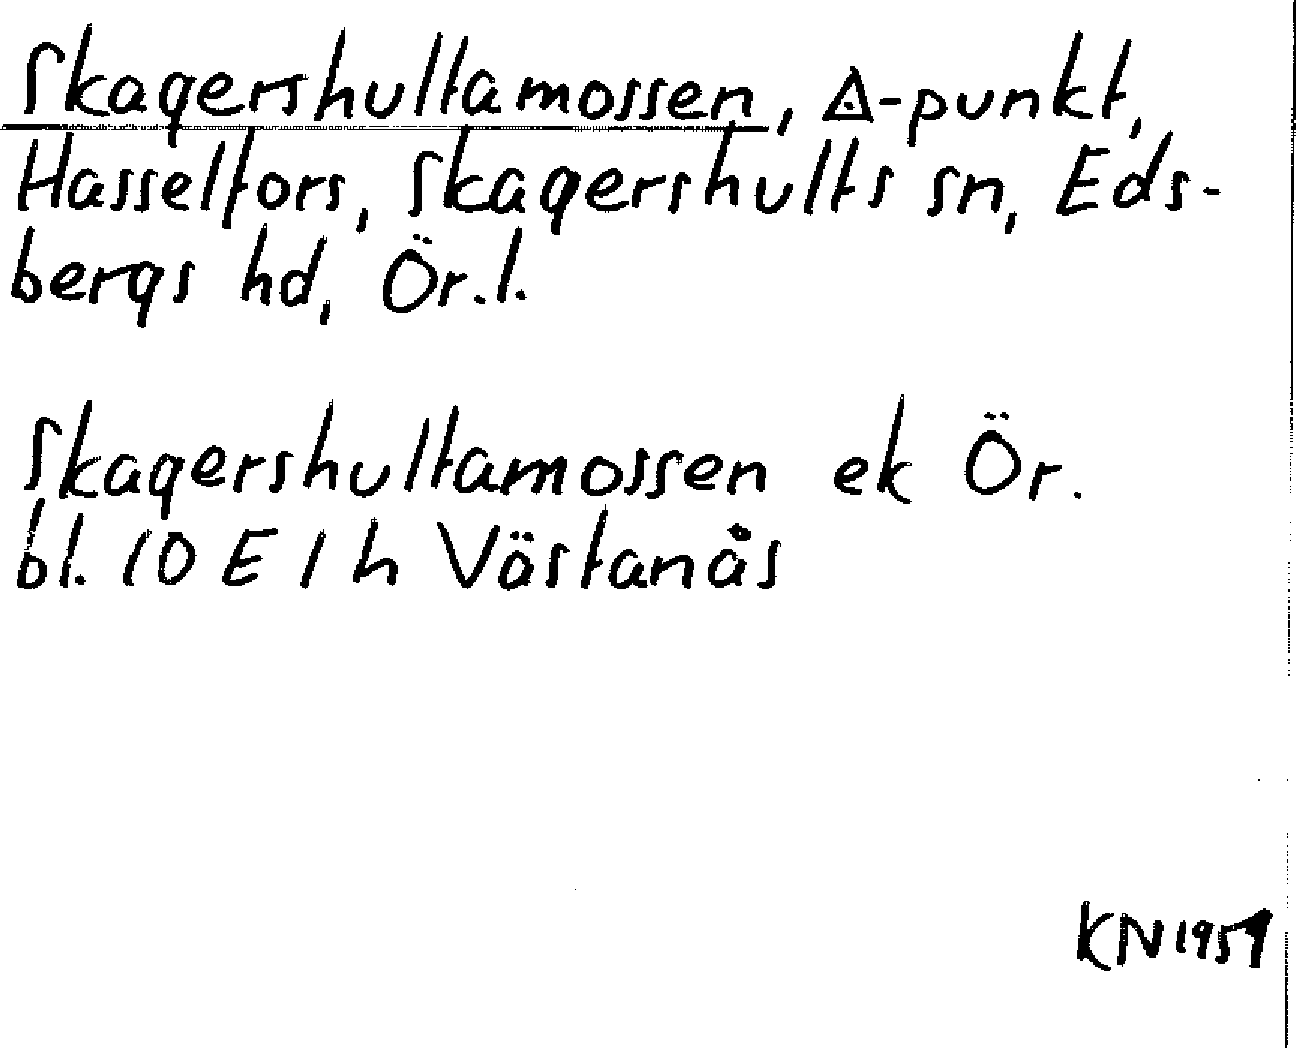 Skagershultamossen, △-punkt,
Hasselfors, Skagershults sn, Eds-
bergs hd, Ör.l.
Skagershultamossen ek Ör.
bl. 10 E 1 h Västanås
KN